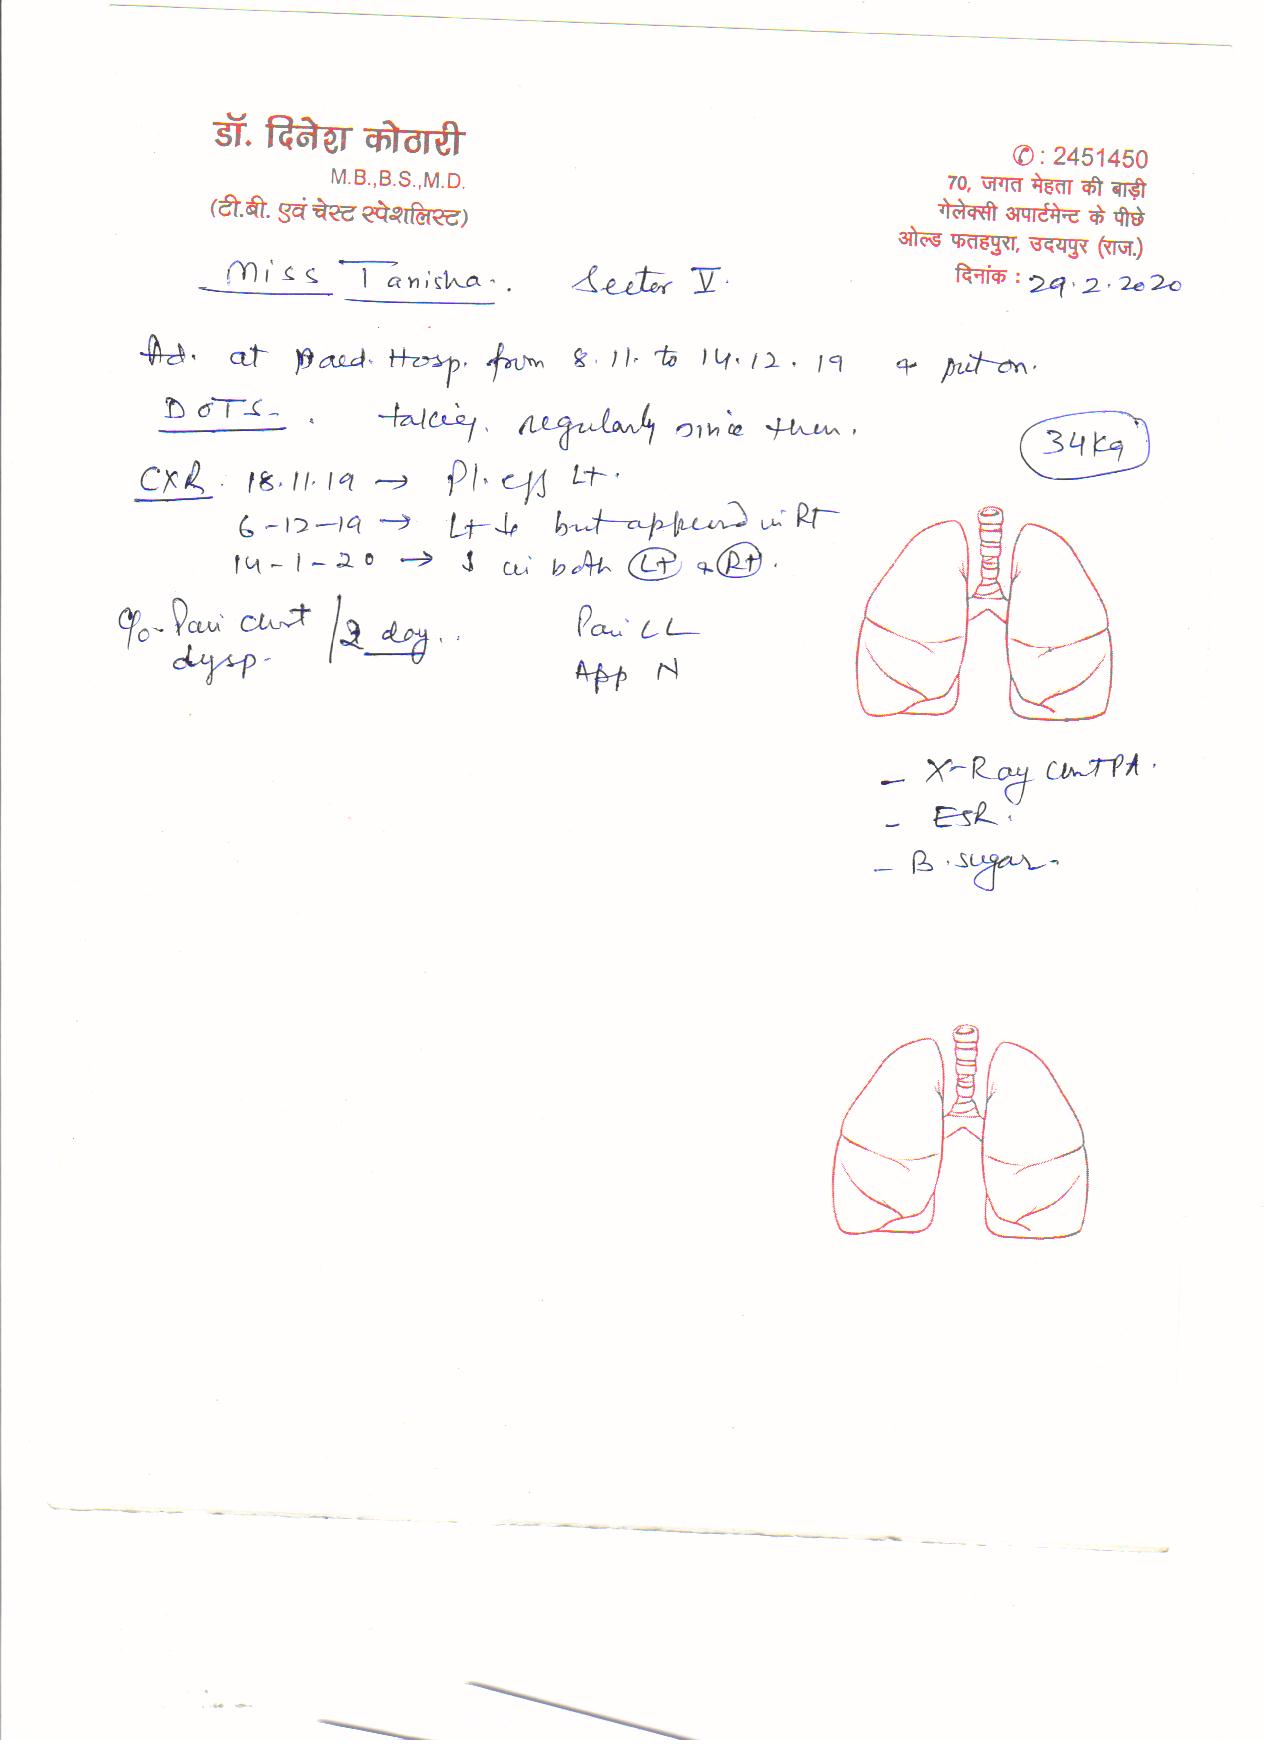 डॉ. दिनेश कोठारी
M.B.,B.S.,M.D.
(टी.बी. एवं चेस्ट स्पेशलिस्ट)
✆ : 2451450
70, जगत मेहता की बाड़ी
गेलेक्सी अपार्टमेन्ट के पीछे
ओल्ड फतहपुरा, उदयपुर (राज.)
दिनांक : 29.2.2020
Miss Tanisha. Sector V.
Ad. at Paed. Hosp. from 8.11. to 14.12.19 & put on.
DOTS. taking regularly since then.
34Kg
CXR. 18.11.19 → Pl. eff Lt.
6-12-19 → Lt ↓ but appeared in Rt
14-1-20 → ↓ in both Lt & Rt.
C/o - Pain Chest / 2 day..
dysp.
Pain LL
App N
- X-Ray Chest PA.
- ESR.
- B. sugar.